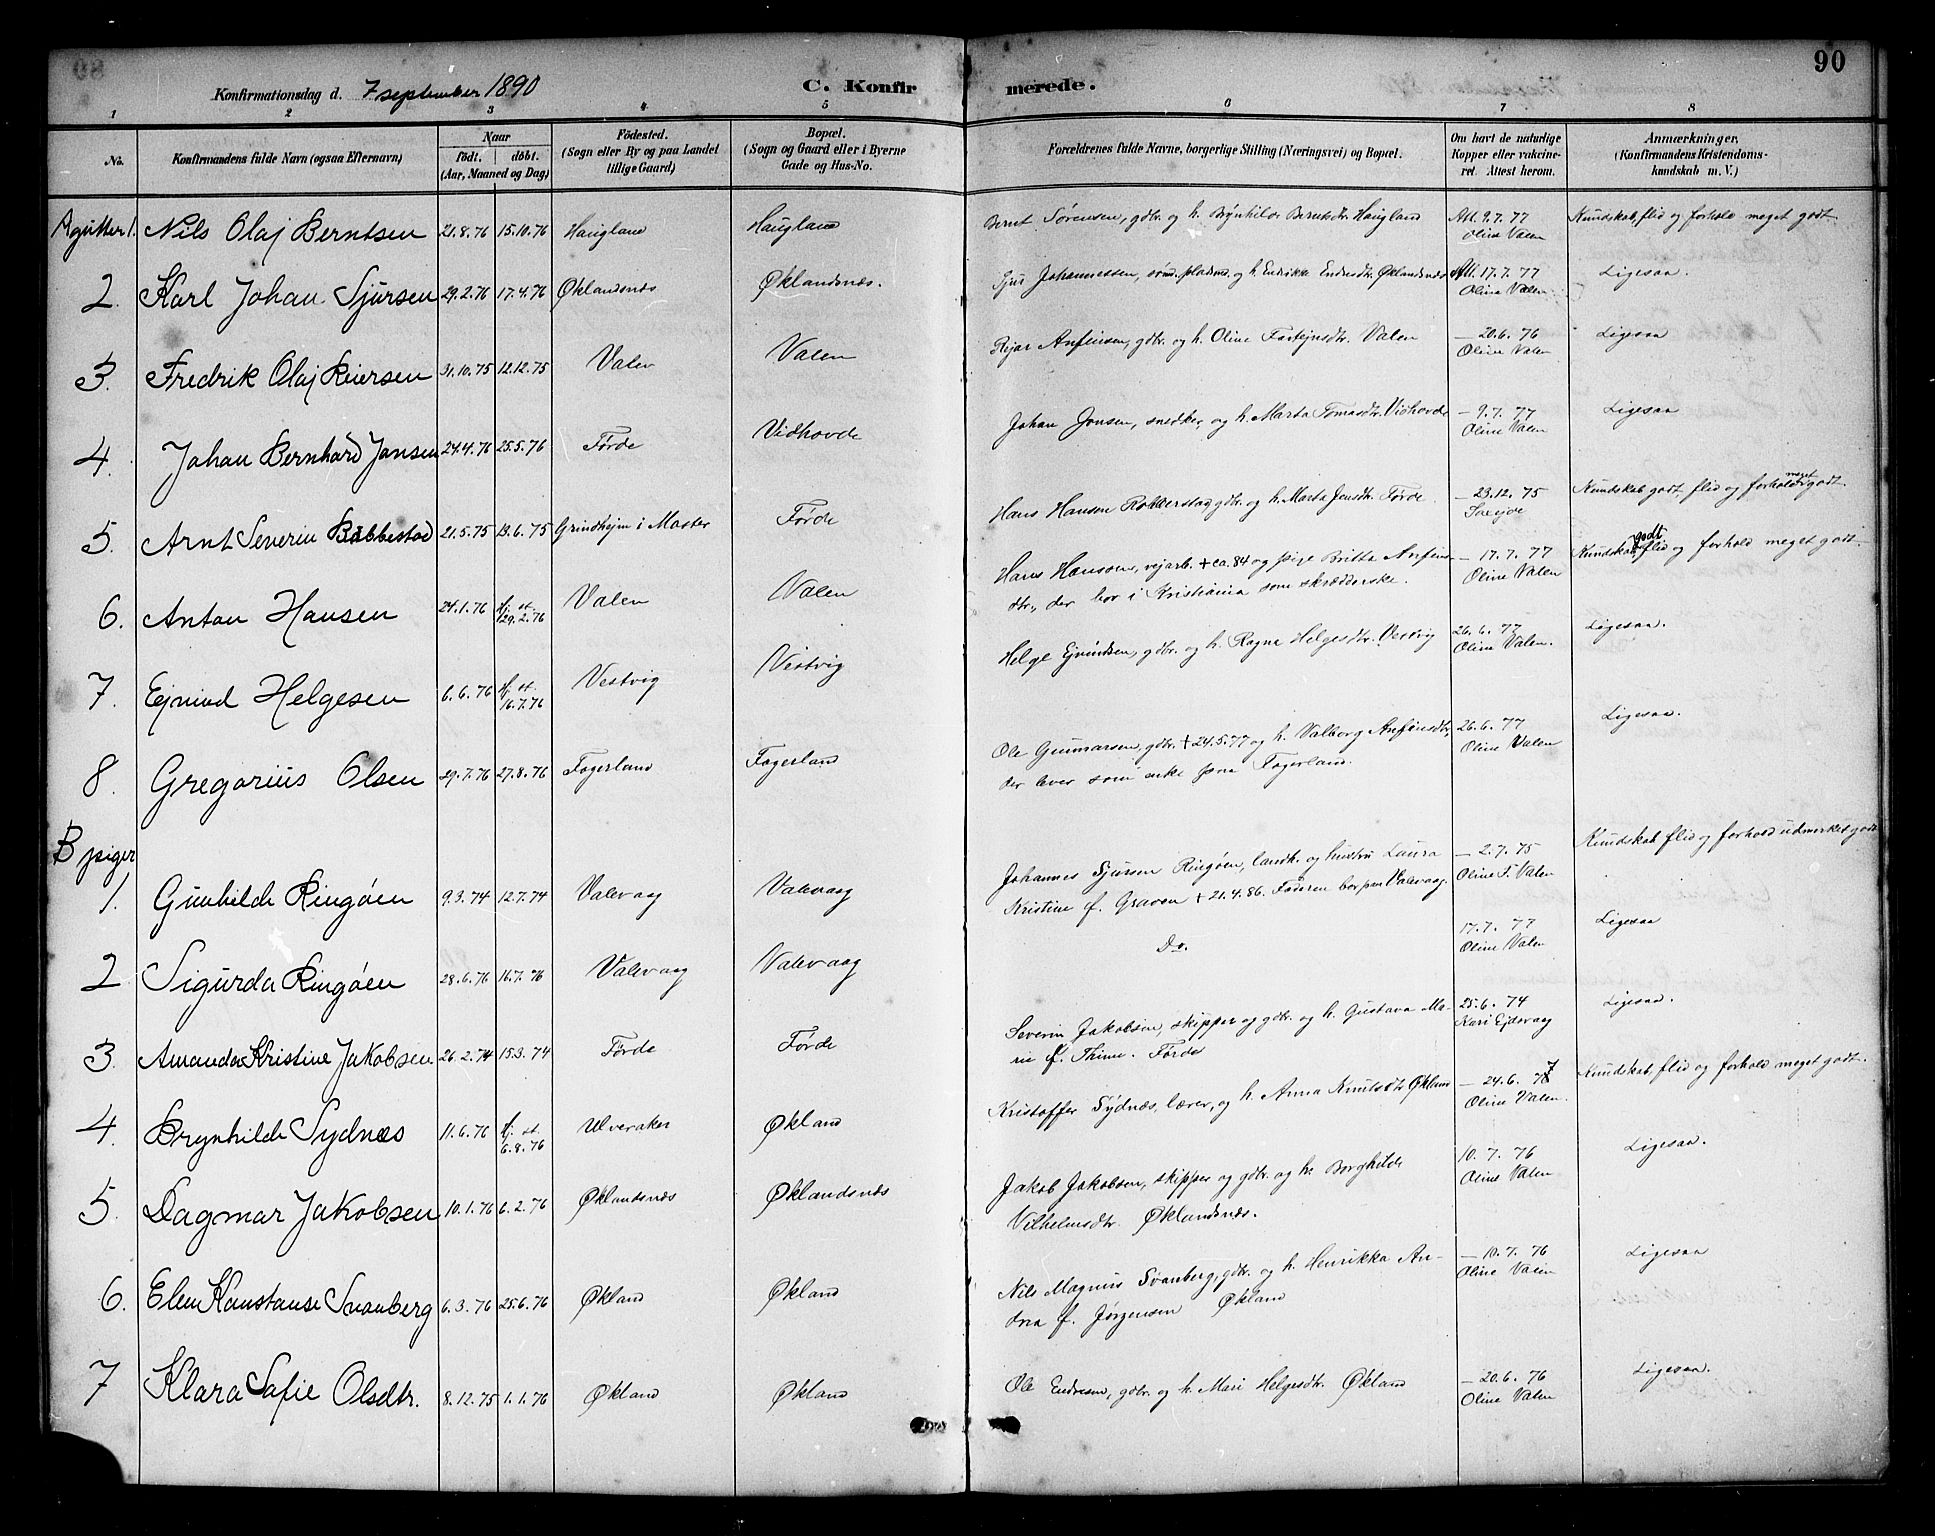 90
Konfirmationsdag d. 7 september 1890
C. Konfirmerede.
1 2 3 4 5 6 7 8
No. Konfirmandens fulde Navn (ogsaa Efternavn) Naar født. døbt. (Aar, Maaned og Dag) Födested. (Sogn eller By og paa Landet tillige Gaard) Bopæl. (Sogn og Gaard eller i Byerne Gade og Hus-No. Forældrenes fulde Navne, borgerlige Stilling (Næringsvei) og Bopæl. Om havt de naturlige Kopper eller vakcineret. Attest herom. Anmærkninger. (Konfirmandens Kristendomskundskab m. V.)
A gutter 1. Nils Olaj Berntsen 21.8.76 15.10.76 Haugland Haugland Bernt Sørensen, gdbr. og h. Brynhilde Berntsdtr. Haugland Att. 9.7.77 Kundskab, flid og forhold meget godt
Oline Valen
2. Karl Johan Sjursen 29.2.76 17.4.76 Øklandsnæs Øklandsnæs. Sjur Johannessen, plads. og h. Endrikke Endresdtr. Øklandsnæs Att. 17.7.77 Ligesaa.
Oline Valen
3. Fredrik Olaj Reiersen 31.10.75 12.12.75 Valen Valen Rejar Anfinsen, gdbr. og h. Oline Valen — 20.6.76 Ligesaa
Oline Valen
4. Johan Bernhard Jansen 24.4.76 25.5.76 Førde Vidhovde Johan Jonsen, snedker, og h. Marta Tomasdtr. Vidhovde — 9.7.77 Ligesaa
Oline Valen
5. Arnt Severin Babbestad 21.5.75 13.6.75 Grindhejm i Moster Førde Hans Hansen gdbr. og h. Marta Jensdtr. Førde — 23.12.75 Kundskab godt, flid og forhold meget godt.
6. Anton Hansen 24.1.76 Hj. st. 29.2.76 Valen Valen Hans Hansen, vejarb. + ca. 84 og pige Britta Anfins- — 17.7.77 Kundskab godt flid og forhold meget godt.
dtr., der bor i Kristiania som skrædderske. Oline Valen
7. Ejvind Helgesen 6.6.76 Hj. st. 16.7.76 Vestvig Vestvig Helge Ejvindsen, gdbr. og h. Ragna Helgesdtr. Vestvig 26.6.77 Ligesaa.
Oline Valen.
8. Gregorius Olsen 29.7.76 27.8.76 Fagerland Fagerland Ole Gunnarsen, gdbr. + 24.5.77 og h. Valborg Anfinsdtr 26.6.77 Ligesaa.
der lever som enke paa Fagerland. Oline Valen
B piger
1. Gunhilde Ringøen 9.3.74 12.7.74 Valevaag Valevaag Johannes Sjursen Ringøen, landh. og hustru Laura — 2.7.75 Kundskab flid og forhold udmerket godt
Kristine f. Graven + 21.4.86. Faderen bor paa Valevaag. Oline T. Valen
2 Sigurda Ringøen 28.6.76 16.7.76 Valevaag Valevaag Do. 17.7.77 Ligesaa
Oline Valen
3. Amanda Kristine Jakobsen 26.2.74 15.3.74 Førde Førde Severin Jakobsen, skipper og gdbr. og h. Gustava Ma- 25.6.74 Ligesaa.
rie f. Thime. Førde Kari Ejdsvaag
4. Brynhilde Sydnæs 11.6.76 Hj. st. 6.8.76 Ulveraker Økland Kristoffer Sydnæs, lærer, og h. Anna Knutsdtr. Økland — 24.6.77 Kundskab, flid og forhold meget godt.
Oline Valen.
5. Dagmar Jakobsen 10.1.76 6.2.76 Øklandsnæs Øklandsnæs Jakob Jakobsen, skipper og gdbr. og h. Borghilde 10.7.76 Ligesaa.
Vilhelmsdtr. Øklandsnæs. Oline Valen
6. Elen Konstanse Svanberg 6.3.76 25.6.76 Økland Økland Nils Magnus Svanberg, gdbr. og h. Henrikka An- — 10.7.76 Ligesaa
drea f. Jørgensen Økland Oline Valen
7 Klara Safie Olsdtr. 8.12.75 1.1.76 Økland Økland Ole Endresen, gdbr. og h. Mari Helgesdtr. Økland — 20.6.76 Ligesaa.
Oline Valen